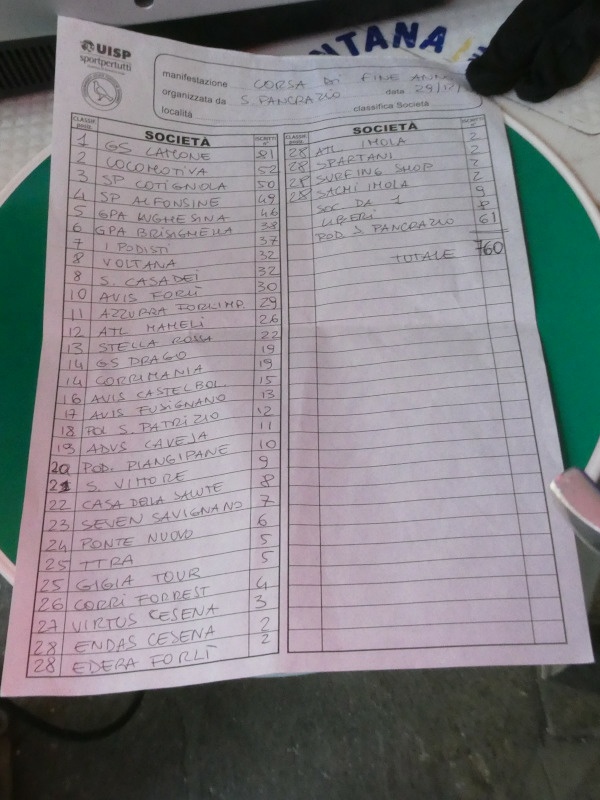 UISP
sportpertutti
NTANA
manifestazione CORSA DI FINE ANNO
organizzata da S. PANCRAZIO data 29/12/
località classifica Società
CLASSIF. SOCIETÀ ISCRITTI n°
1 GS LAMONE 81
2 LOCOMOTIVA 52
3 SP COTIGNOLA 50
4 SP ALFONSINE 49
5 GPA LUGHESINA 46
6 GPA BRISIGHELLA 38
7 I PODISTI 37
8 VOLTANA 32
8 S. CASADEI 32
10 AVIS FORLÌ 30
11 AZZURRA FORLIMP. 29
12 ATL MAMELI 26
13 STELLA ROSSA 22
14 GS DRAGO 19
14 CORRIMANIA 19
16 AVIS CASTELBOL. 15
17 AVIS FUSIGNANO 13
18 POL S. PATRIZIO 12
19 ADVS CAVEJA 11
20 POD. PIANGIPANE 10
21 S. VITTORE 9
22 CASA DELLA SALUTE 8
23 SEVEN SAVIGNANO 7
24 PONTE NUOVO 6
25 TTRA 5
25 GIGIA TOUR 5
26 CORRI FORREST 4
27 VIRTUS CESENA 3
28 ENDAS CESENA 2
28 EDERA FORLÌ 2
CLASSIF. SOCIETÀ ISCRITTI n°
28 ATL IMOLA 2
28 SPARTANI 2
28 SURFING SHOP 2
28 SACMI IMOLA 2
SOC DA 1 9
LIBERI 8
POD S PANCRAZIO 61
TOTALE 760